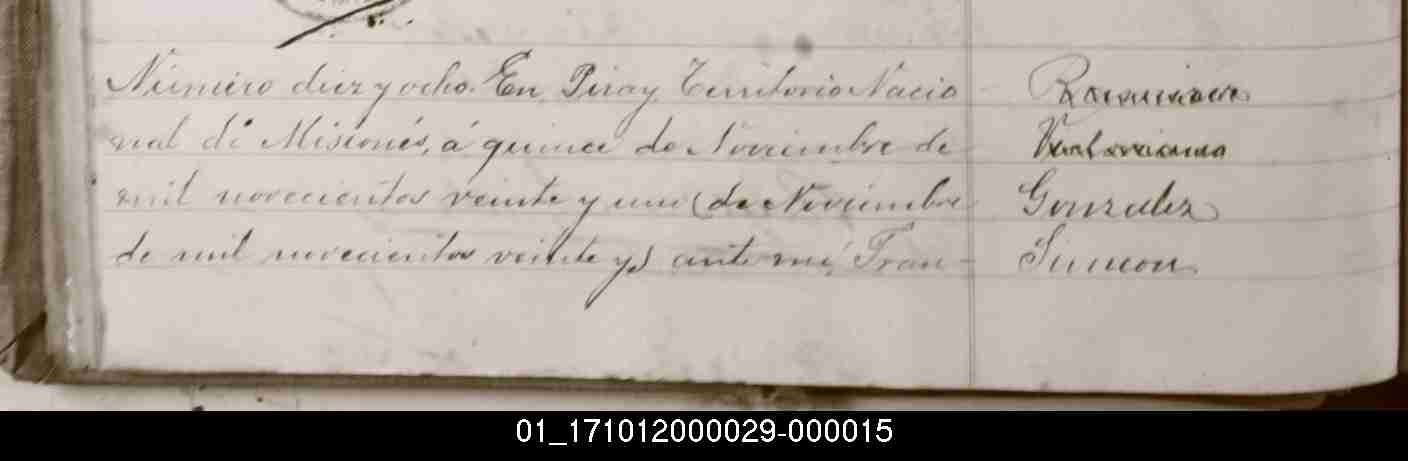 Número diez y ocho. En Piray Territorio Nacio
nal de Misiones, á quince de Noviembre de
mil novecientos veinte y uno (de Noviembre
de mil novecientos veinte y) ante mí, Fran-
Gonzalez
Simeon
01_171012000029-000015